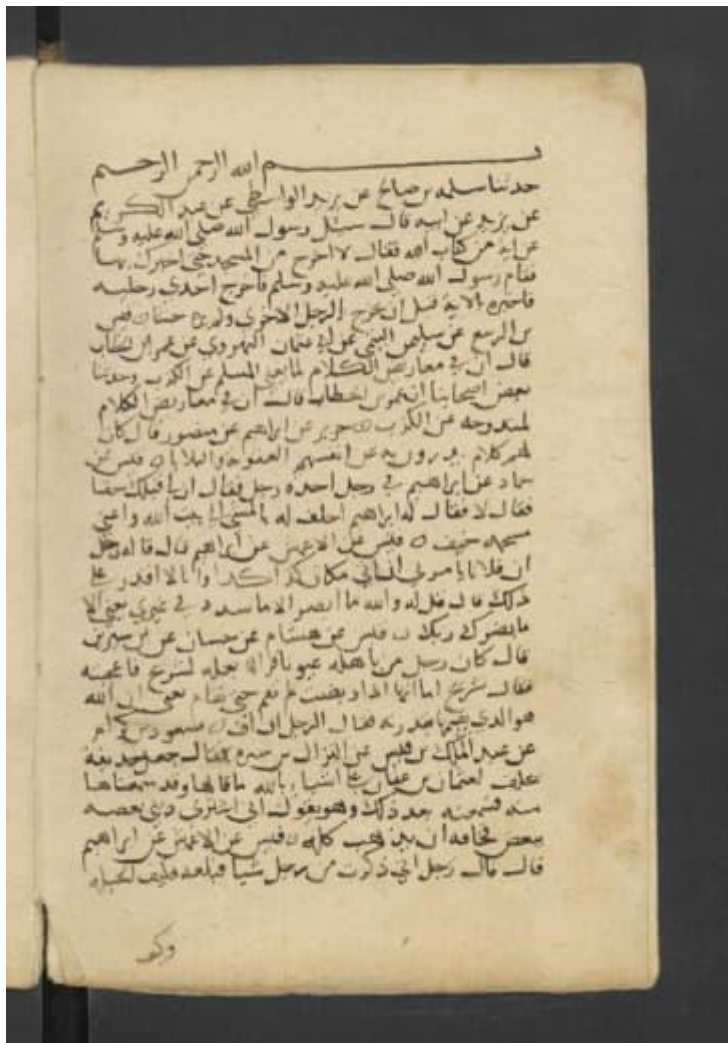 بسم الله الرحمن الرحيم
حدثنا سلمه بن صالح عن يزيد الواسطي عن عبد الكريم
عن يزيد عن ابيه قال سئل رسول الله صلى الله عليه وسلم
عن اية من كتاب الله فقال لا اخرج من المسجد حتى اخبرك بها
فقام رسول الله صلى الله عليه وسلم فاخرج احدى رجليه
فاخبره بالاية قبل ان يخرج الرجل الاخرى قيس
بن الربيع عن سليمن التيمي عن ابي عثمان النهدي عن عمر بن الخطاب
قال ان في معاريض الكلام لما يغني المسلم عن الكذب وحدثنا
بعض اصحابنا ان عمر بن الخطاب قال ان في معاريض الكلام
لمندوحه عن الكذب جرير عن ابراهيم عن منصور قال كان
لهم كلام يدرون به عن انفسهم العقوبه والبلايا قيس عن
حماد عن ابراهيم في رجل اخذه رجل فقال ان لي قبلك حقا
فقال لا فقال له ابراهيم احلف له بالمشي الى بيت الله واعني
مسجد قيس عن الاعمش عن ابراهيم قال قال له رجل
ان فلانا يامرني ان اتي مكان كذا وكذا وانا لا اقدر على
ذلك قال قل له والله ما ابصر الا ما سدد لي غيري يعني الا
ما بصرك ربك قيس عن هشام عن حسان عن بن سيرين
قال كان رجل من باهله عيونا فراى بغله لشريح فاعجبته
فقال شريح اما انها اذا ربضت لم تقم حتى تقام يعني ان الله
هو الذي يقيمها بقدرته فقال الرجل اف اف مسعود بن
عن عبد الملك بن عن النزال بن سبره قال جعل حذيفة
يحلف لعثمان بن عفان على اشياء بالله ما قالها وقد سمعناها
منه فسمعته بعد ذلك وهو يقول اني اشتري ديني بعضه
ببعض مخافه ان يذهب كله قيس عن الاعمش عن ابراهيم
قال قال رجل اني ذكرت من رجل شيا فبلغه فكيف